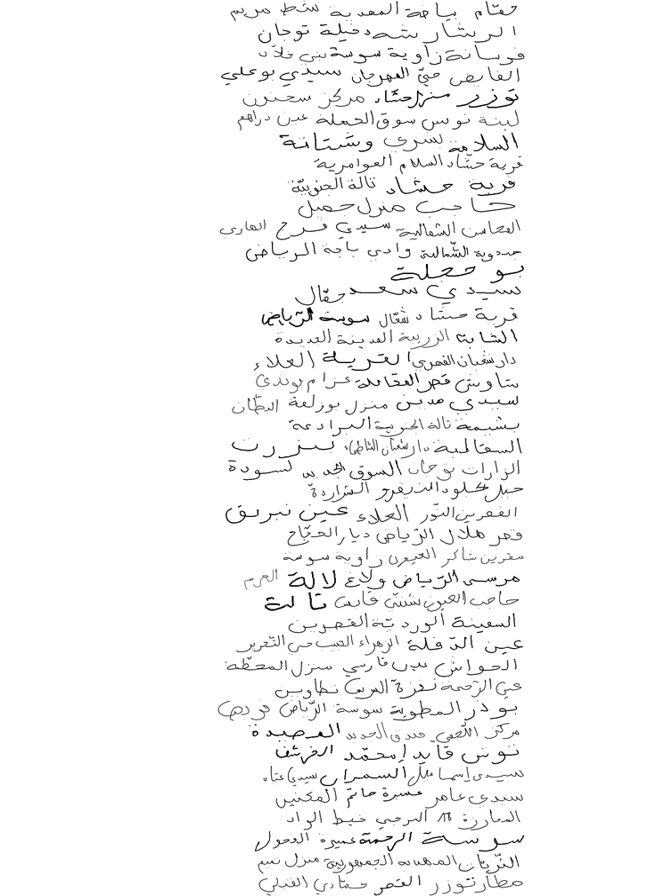 حقّام بياضة المهدية شط مريم
الرشارشه دخيلة توجان
فرسانة زاوية سوسة بني خلاد
القابض حيّ المهرجان سيدي بوعلي
توزر منزل حشاد مركز سجنان
لبنة تونس سوق الجملة عين دراهم
السلامة يسرى وشتاتة
قرية حشّاد السلام العوامرية
قرية حشاد تالة الجنوبيّة
حاجب منزل جميل
الشمالية سيدي فرح الهاري
جندوبة الشّمالية وادي باجة الرياض
بوحجلة
سيدي سعد جقّال
قرية حشاد شقّال سوسة الرّياض
الشابة الزريبة المدينة الجديدة
دار شعبان الفهري القرية العلاء
ساوش قصر العقاملة عزام بوندي
سيدي مدين منزل بوزلفة البطّان
بشيمة تالة الجنوبية البرادعة
السقالبة دار شعبان الشاطئ بنزرت
الزارات توجان السوق الجديد لسودة
جبل جلود الشراردة
القصرين النّور العلاء عين نبرنق
قصر هلال الرّياض ديار الحجّاج
مقرين شاكر العيون زاوية سوسة
مرسى الرّياض ولاغ لالة الهرم
حاجب العيون شنني قابس تالة
السفينة الورديّة القصرين
عين الدّفلة الزهراء حي التّحرير
الحواش فارسي منزل المحطّة
عين الرّحمة نفزة تطاوين
بوذر المطوية سوسة الرّياض
مركز فندق الجديد القصيدة
تونس قايد امحمّد
سيدي إسماعيل السمران
سيدي عامر عميرة حاتم المكنين
18 المرجى خيط الواد
سوسة الرحمة عميرة الفحول
المهدية الجمهورية منزل تميم
مطار توزر القصر